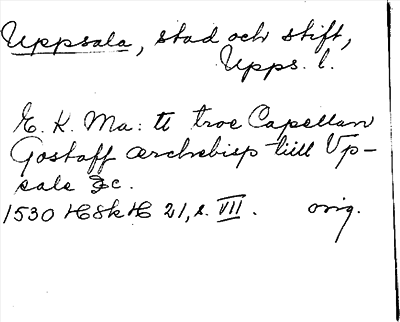 Uppsala, stad och stift,
Upps. l.
E. K. Ma: tt troe Capellan
Gostaff archebisp tiill Vp-
sale &c.
1530 HSkH 21, s. VII. orig.